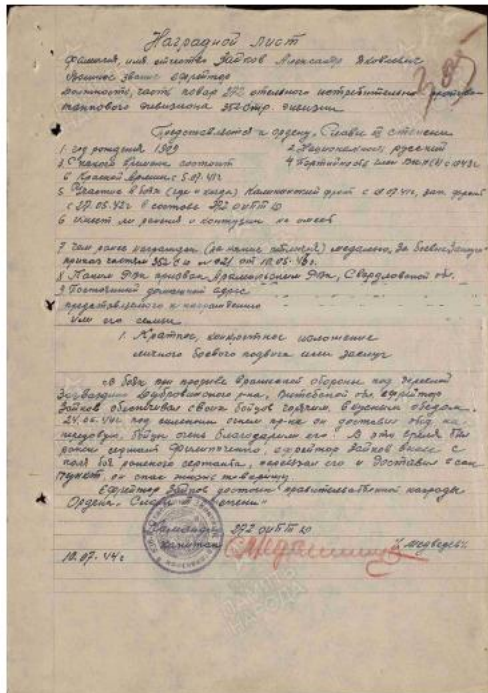 Наградной лист
Фамилия, имя, отчество Зайков Александр Яковлевич
Военное звание ефрейтор
должность, часть повар 272 отдельного истребительного противо
танкового дивизиона 352 стр. дивизии
Представляется к ордену "Славы III степени
1. год рождения 1909 2. Национальность русский
3. С какого времени состоит 4. Партийность член ВКП(б) с 1943г.
в Красной Армии с 5.07.41г
5. Участие в боях (где и когда) Калининский фронт с 10.07.41г, зап. фронт
с 27.05.42г в составе 272 оиптд
6. имеет ли ранения и контузии не имеет
7. чем ранее награжден (за какие отличия) медалью "За боевые заслуги"
приказ частям 352 сд от 10.05.43г.
8. Каким РВК призван РВК, Свердловской обл.
9. Постоянный домашний адрес
представляемого к награждению
или его семьи
1. Краткое, конкретное изложение
личного боевого подвига или заслуг
"В боях при прорыве вражеской обороны под деревней
Дубровинского р-на, Витебской обл. ефрейтор
Зайков обеспечивал своих бойцов горячим, вкусным обедом.
24.06.44г под сильным огнем пр-ка он доставил обед на
передовую. Бойцы очень благодарили его. В это время был
ранен сержант ефрейтор Зайков вынес с
поля боя раненого сержанта, перевязал его и доставил в сан
пункт, он спас жизнь товарищу.
Ефрейтор Зайков достоин правительственной награды
Ордена "Славы III степени"
Командир 272 оиптд
капитан /Медведев/
10.07.44г
ПАМЯТЬ
НАРОДА